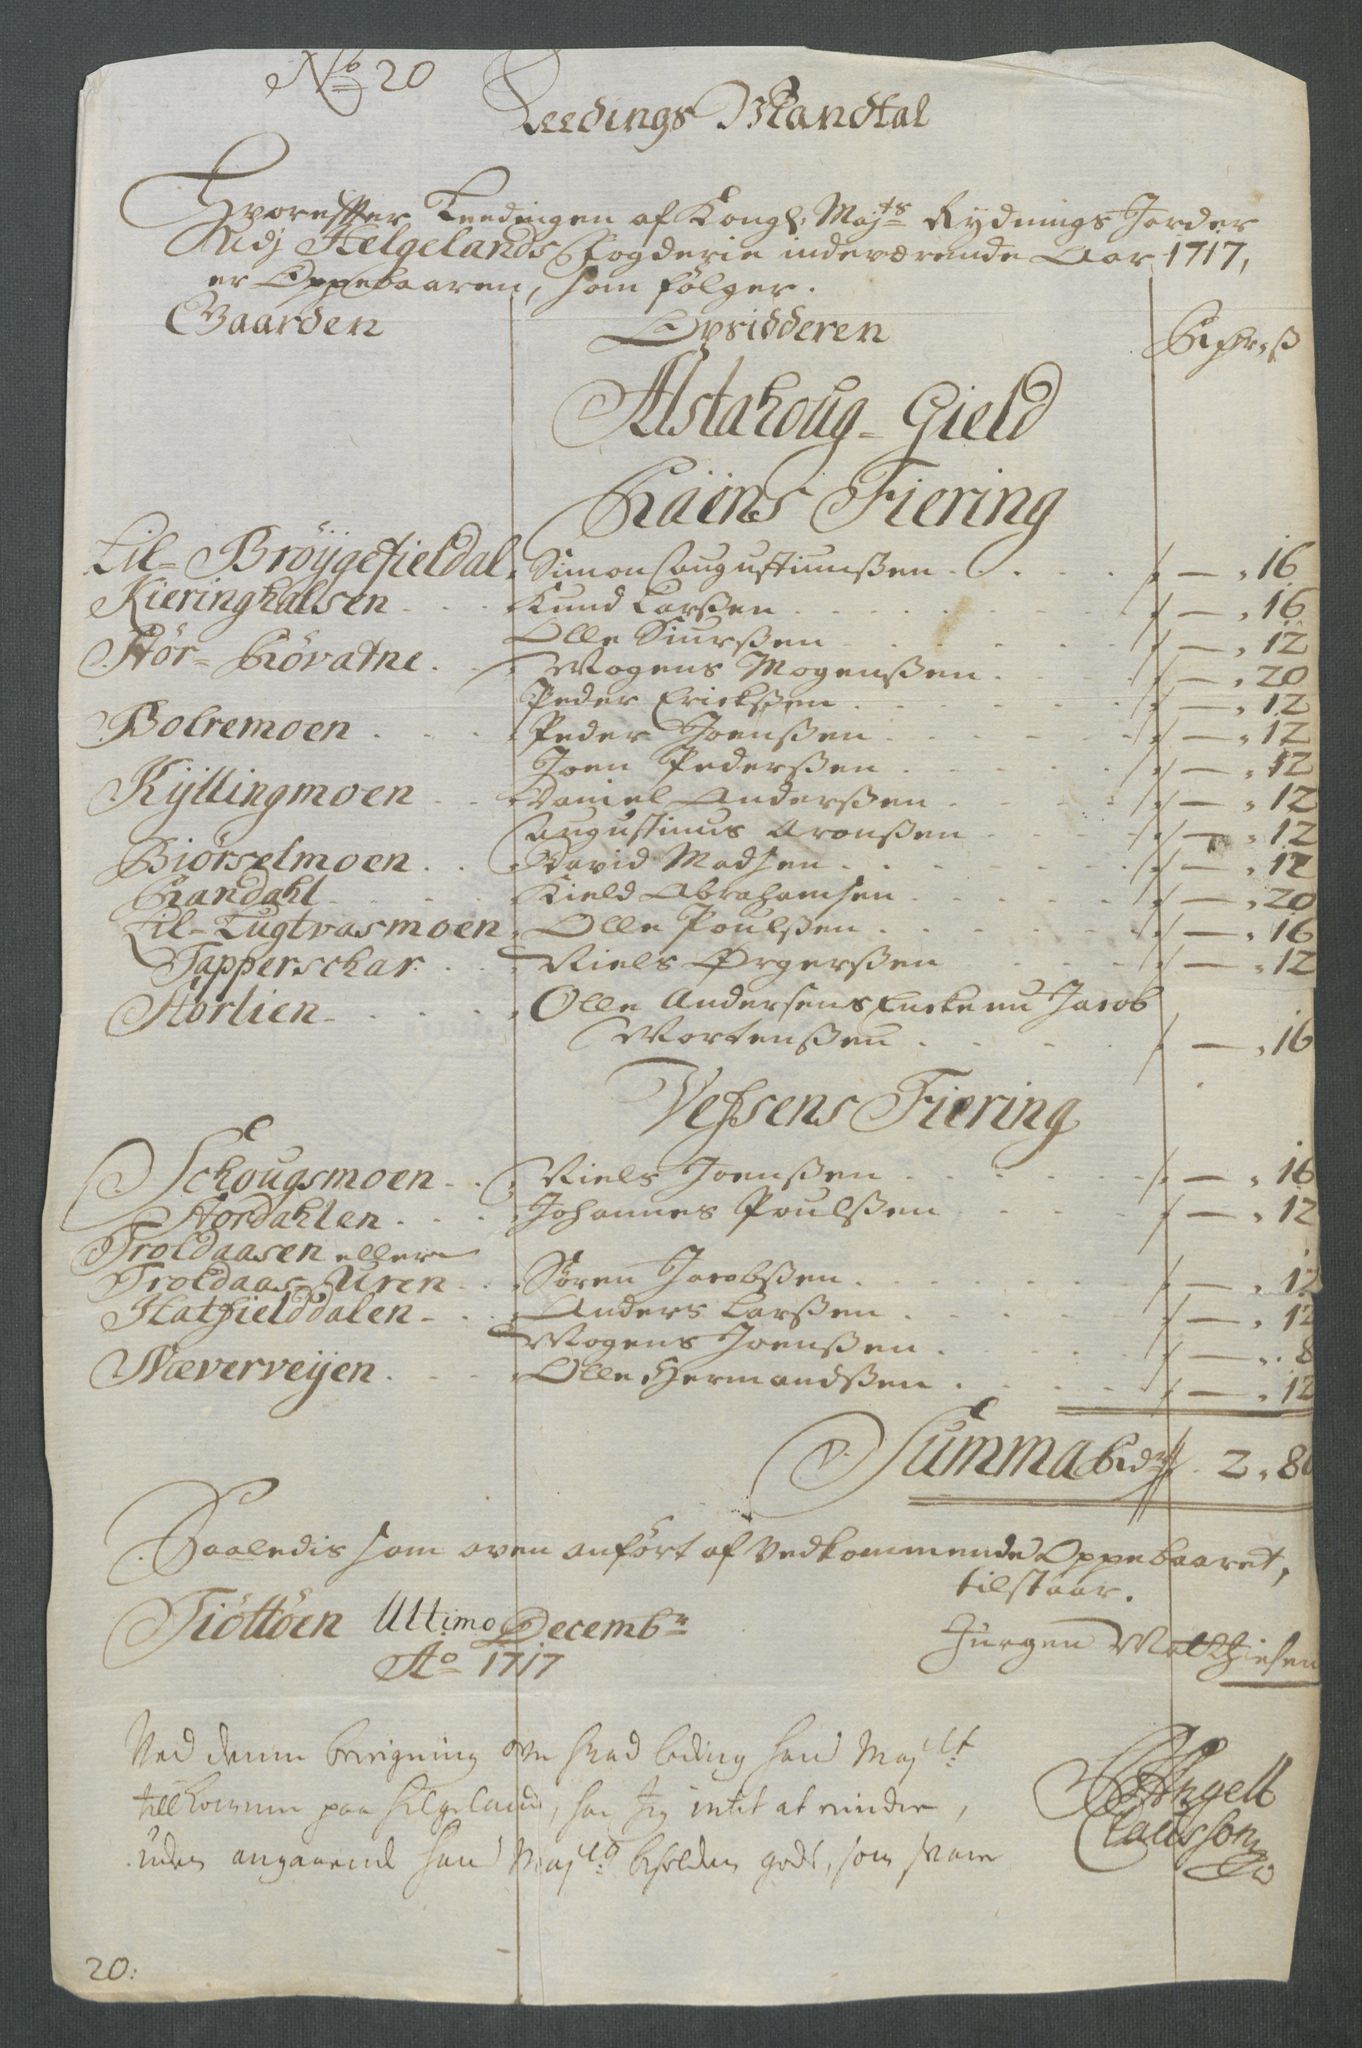 No 20
Leedings Mandtal
Hvorefter Leedingen af Kongl: Majts Rydnings Jorder
Udj Helgelands Fogderie indeværende Aar 1717,
er Oppebaaren, som følger.
Gaarden Opsidderen
Alstahoug - Gield
Raens Fiering
Lil- Bröijgefieldal Simon Augustinußen 16
Kieringhalsen Knud Larßen 16
Olle Siurßen 12
Stör- Rövatne Mogens Mogenßen 20
Peder Erichßen 12
Bolremoen Peder Joenßen 12
Joen Pederßen 12
Kÿllingmoen Daniel Anderßen 12
Augustinus Aronßen 12
Biörselmoen David Madsen 12
Randahl Kield Abrahamsen 20
Lil-Lugtvasmoen Olle Poulßen 16
Tapperschar Niels Ørgerßen 12
Storlien Olle Andersens Encke nu Jacob
Mortenßen 16
Vefsens Fiering
Schougsmoen Niels Joenßen 16
Stordahlen Johannes Poulßen 12
Troldaasen eller
Troldaas-Uren Sören Jacobßen 12
Hatfielddalen Anders Larßen 12
Mogens Joenßen 8
Næverveijen Olle Hermandßen 12
Summa Rdr 2 , 80
Saaledis som oven anfört af Vedkommende Oppebaaret,
tilstaar.
Tiöttöen Ultimo Decembr
Ao 1717
Jurgen Matthiesen
Ved denne beregning over hvad leding hans Mayst:
tilkommer paa Helgeland, har Jeg intet at erindre,
uden angaaende hans Mayts: beholden gods, som svare
SAngell
Clausson
20: